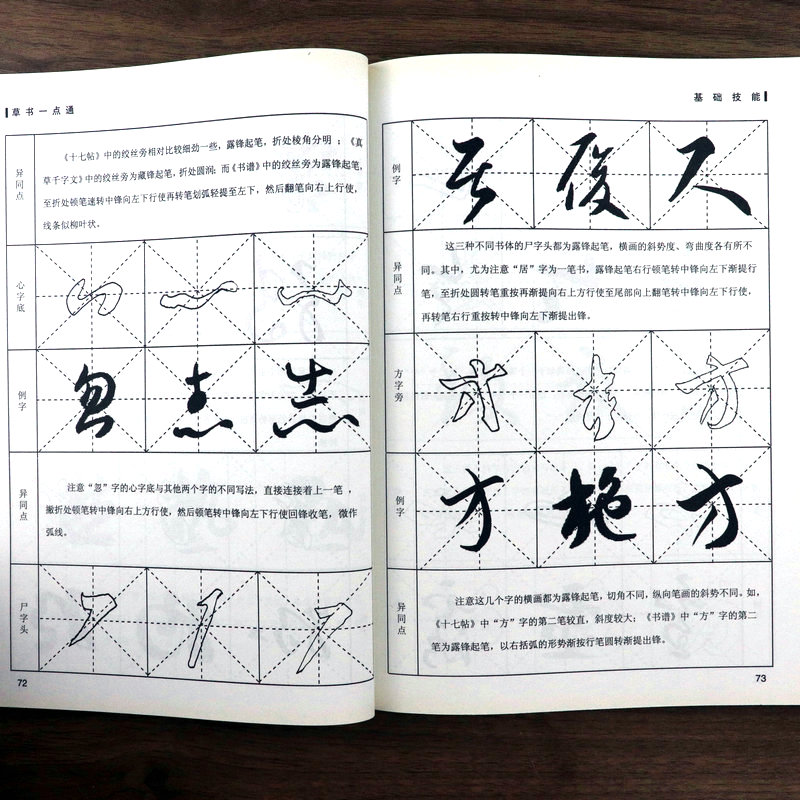 草书一点通
异同点
《十七帖》中的绞丝旁相对比较细劲一些，露锋起笔，折处棱角分明；《真
草千字文》中的绞丝旁为藏锋起笔，折处圆润；而《书谱》中的绞丝旁为露锋起笔，
至折处顿笔速转中锋向左下行使再转笔划弧轻提至左下，然后翻笔向右上行使，
线条似柳叶状。
心字底
例字
忽 志 志
异同点
注意“忽”字的心字底与其他两个字的不同写法，直接连接着上一笔，
撇折处顿笔转中锋向右上方行使，然后顿笔转中锋向左下行使回锋收笔，微作
弧线。
尸字头
72
基础技能
例字
居 尺
异同点
这三种不同书体的尸字头都为露锋起笔，横画的斜势度、弯曲度各有所不
同。其中，尤为注意“居”字为一笔书，露锋起笔右行顿笔转中锋向左下渐提行
笔，至折处圆转笔重按再渐提向右上方行使至尾部向上翻笔转中锋向左下行使，
再转笔右行重按转中锋向左下渐提出锋。
方字旁
例字
方 施 方
异同点
注意这几个字的横画都为露锋起笔，切角不同，纵向笔画的斜势不同。如，
《十七帖》中“方”字的第二笔较直，斜度较大；《书谱》中“方”字的第二
笔为露锋起笔，以右括弧的形势渐按行笔圆转渐提出锋。
73